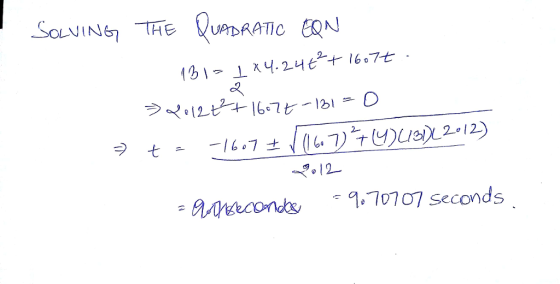 SOLVING THE QUADRATIC EQN
131 = 1/2 × 4.24t² + 16.7t .
⇒ 2.12t² + 16.7t - 131 = 0
⇒ t = -16.7 ± √((16.7)² + (4)(131)(2.12)) / 2.12
= 9.70707 seconds .